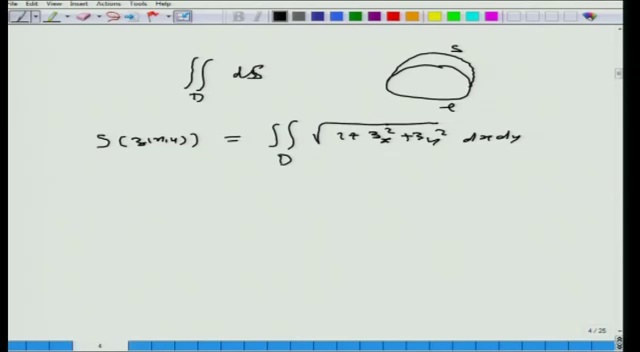 File Edit View Insert Actions Tools Help
∬_D dS
S
l
S(z(x,y)) = ∬_D √(1+z_x²+z_y²) dxdy
4 / 25
4